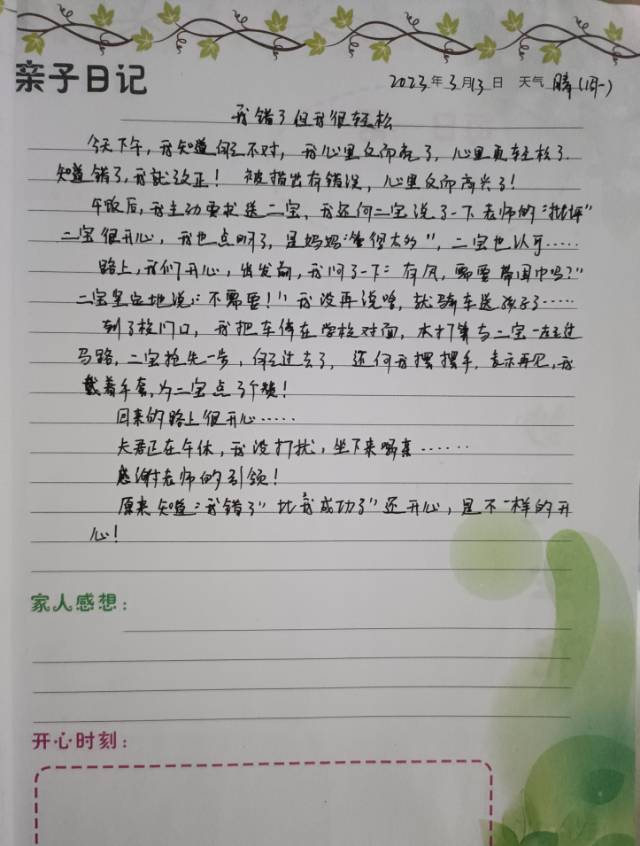 亲子日记
2023年3月13日 天气 晴(周一)
我错了但我很轻松
今天下午,我知道何不对,我心里反而亮了,心里更轻松了.
知道错了,我就改正! 被指出有错误,心里反而高兴了!
午饭后,我主动要求送二宝,我还向二宝说了一下老师的"批评"
二宝很开心,我也点明了,是妈妈"管得太多",二宝也认可……
路上,我们开心,出发前,我问了一下:"有风,需要带围巾吗?"
二宝坚定地说:"不需要!"我没再说啥,就骑车送孩子了……
到了校门口,我把车停在学校对面,本打算与二宝一起过
马路,二宝抢先一步,过去了,还向我摆摆手,表示再见,我
戴着手套,为二宝点了个赞!
回来的路上很开心……
大君正在午休,我没打扰,坐下来喝
感谢老师的引领!
原来知道"我错了"比"我成功了"还开心,是不一样的开
心!
家人感想:
开心时刻: